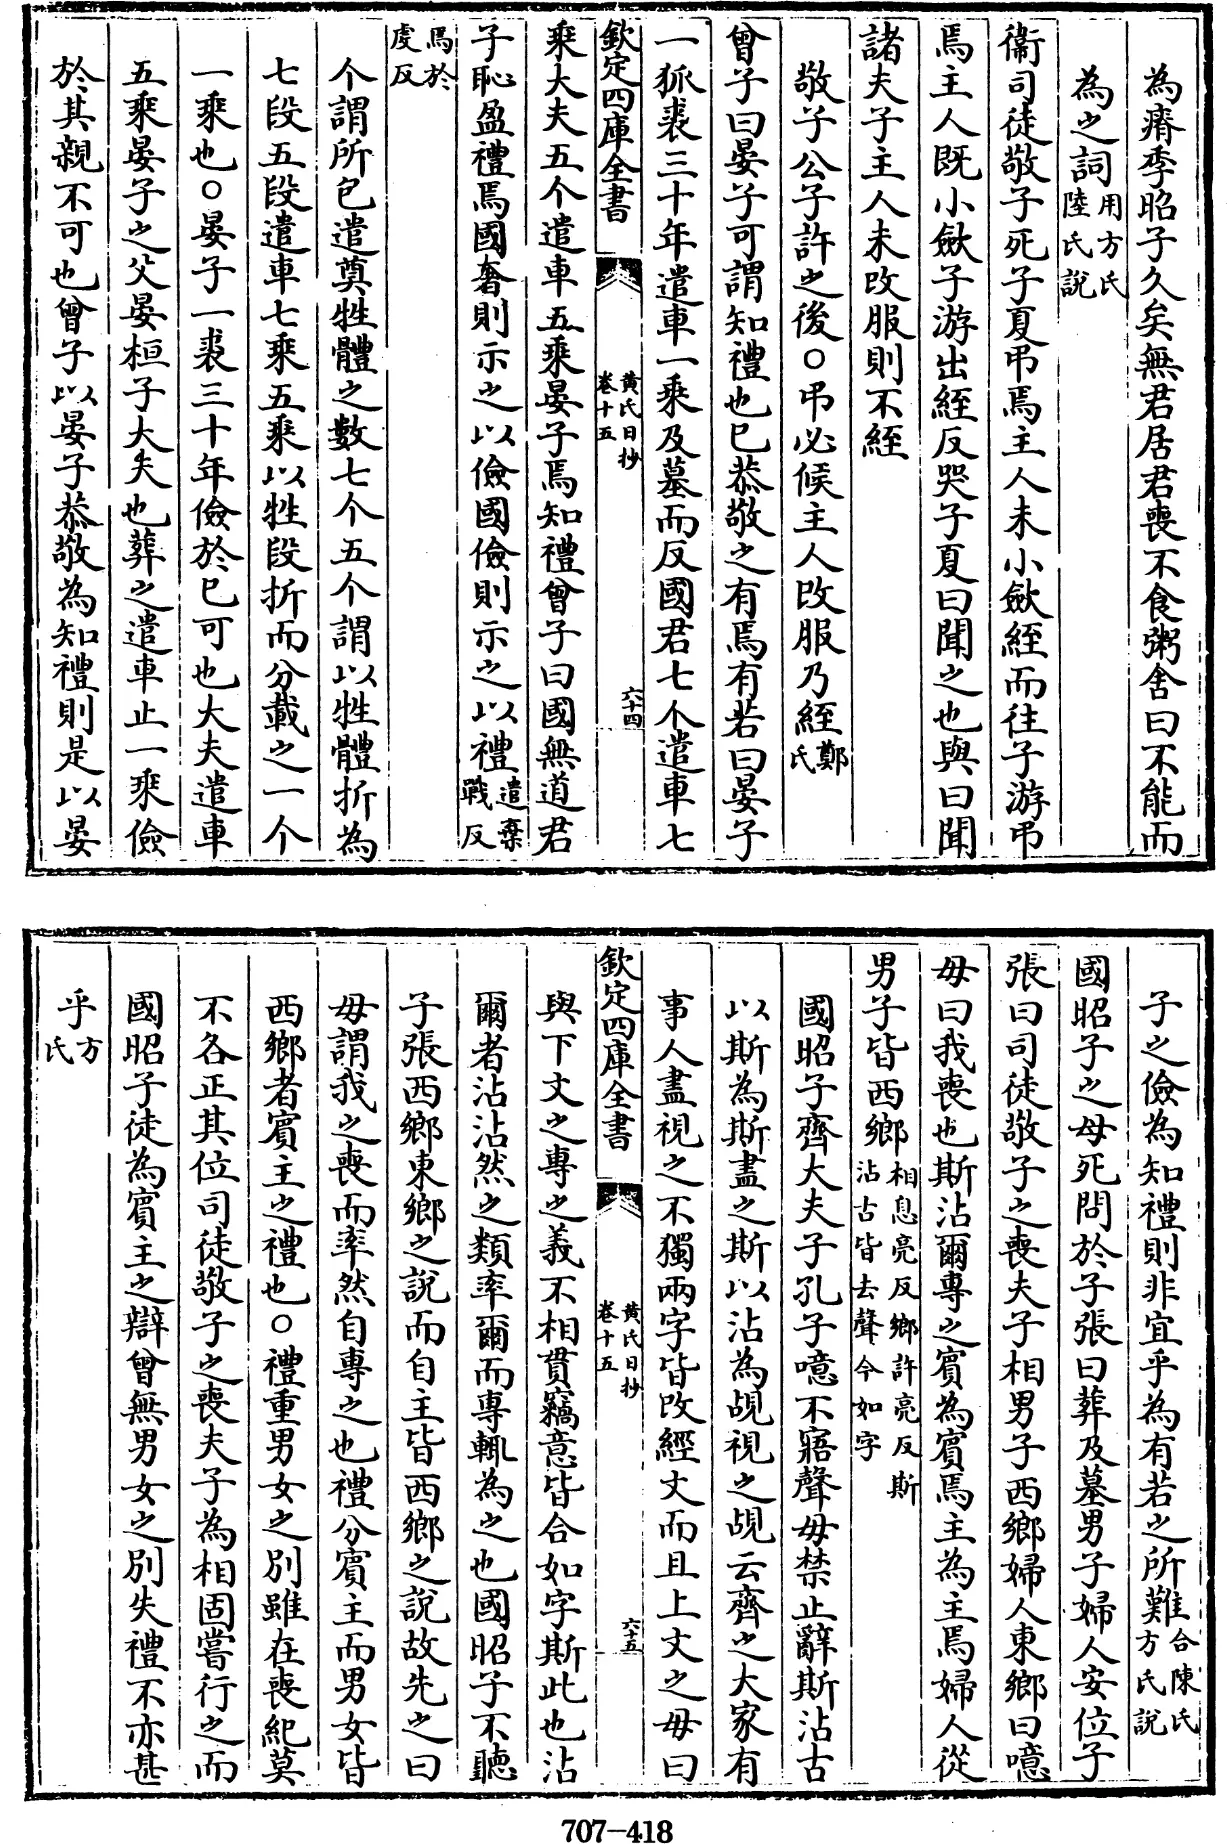 為瘠季昭子久矣無君居君喪不食粥舍曰不能而
為之詞用方氏陸氏説
衞司徒敬子死子夏弔焉主人未小歛絰而往子游弔
焉主人既小歛子游出絰反哭子夏曰聞之也與曰聞
諸夫子主人未改服則不絰
敬子公子許之後○弔必候主人改服乃絰鄭氏
曾子曰晏子可謂知禮也已恭敬之有焉有若曰晏子
一狐裘三十年遣車一乗及墓而反國君七个遣車七
欽定四庫全書
黄氏日抄
卷十五
六十四
乗大夫五个遣車五乗晏子焉知禮曾子曰國無道君
子恥盈禮焉國奢則示之以儉國儉則示之以禮遣棄戰反
焉於虔反
个謂所包遣奠牲體之數七个五个謂以牲體折為
七段五段遣車七乗五乗以牲段折而分載之一个
一乗也○晏子一裘三十年儉於已可也大夫遣車
五乗晏子之父晏桓子大夫也葬之遣車止一乗儉
於其親不可也曾子以晏子恭敬為知禮則是以晏
子之儉為知禮則非宜乎為有若之所難合陳氏方氏説
國昭子之母死問於子張曰葬及墓男子婦人安位子
張曰司徒敬子之喪夫子相男子西鄉婦人東鄉曰噫
毋曰我喪也斯沾爾專之賓為賓焉主為主焉婦人從
男子皆西鄉相息亮反鄉許亮反斯沾古皆去聲今如字
國昭子齊大夫子孔子噫不寤聲毋禁止辭斯沾古
以斯為斯盡之斯以沾為覘視之覘云齊之大家有
事人盡視之不獨兩字皆改經文而且上文之毋曰
欽定四庫全書
黄氏日抄
卷十五
六十五
與下文之專之義不相貫竊意皆合如字斯此也沾
爾者沾沾然之類率爾而專輒為之也國昭子不聽
子張西鄉東鄉之説而自主皆西鄉之説故先之曰
毋謂我之喪而率然自專之也禮分賓主而男女皆
西鄉者賓主之禮也○禮重男女之別雖在喪紀莫
不各正其位司徒敬子之喪夫子為相固嘗行之而
國昭子徒為賓主之辯曾無男女之別失禮不亦甚
乎方氏
707-418